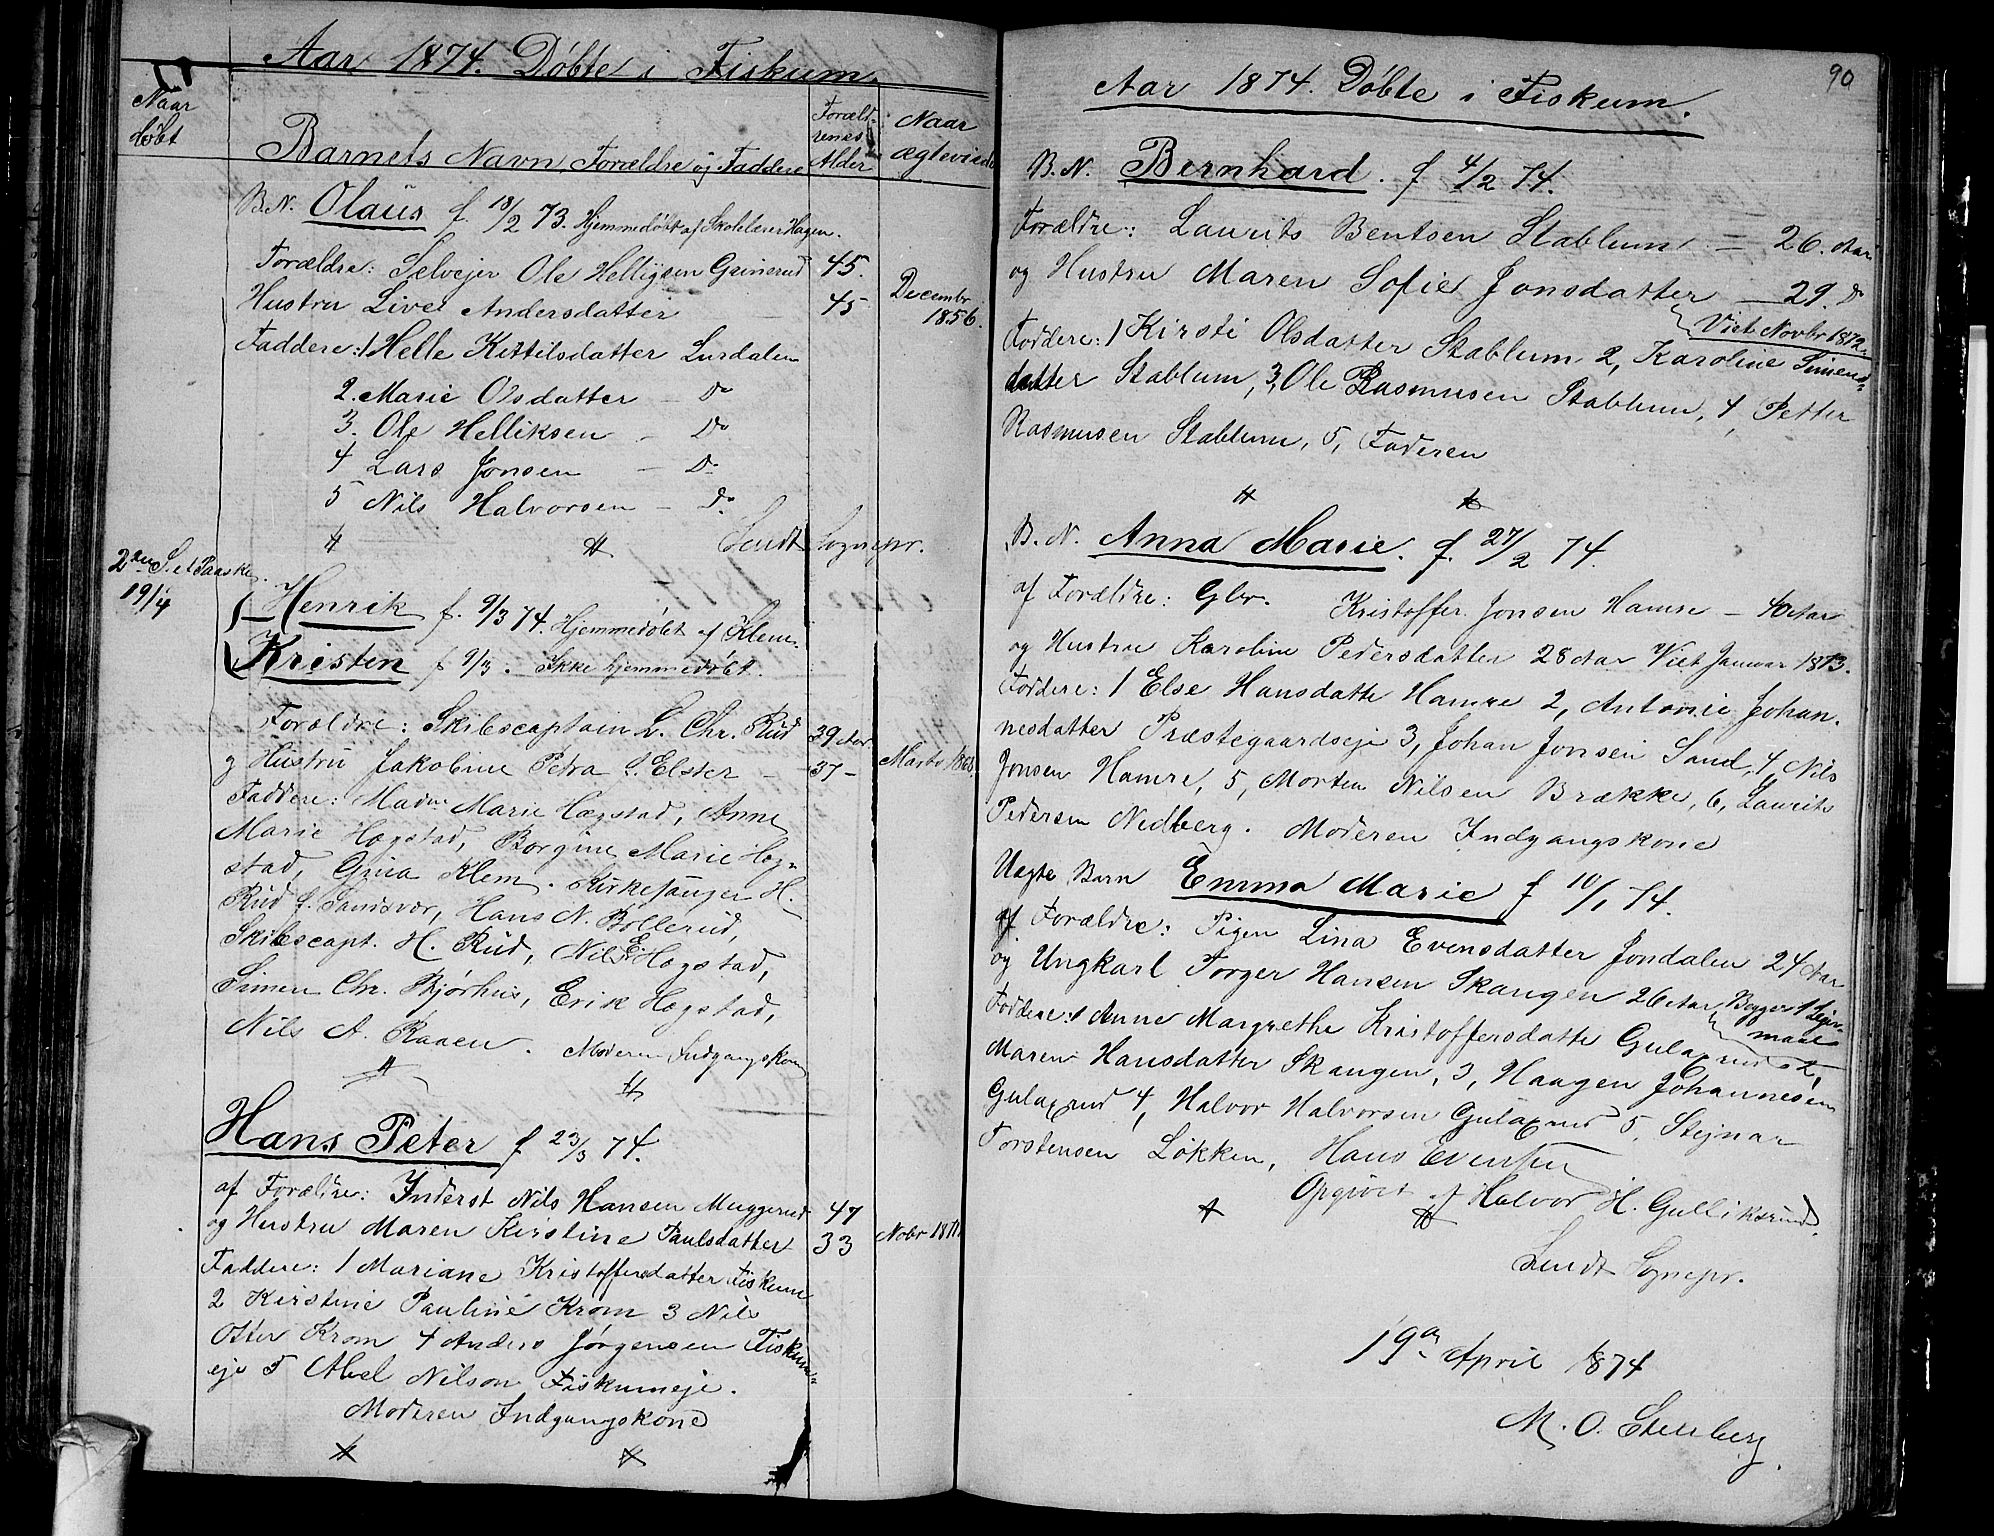 Aar 1874. Döbte i Fiskum
Naar
döbt
Barnets Navn, Forældre og Faddere
Foræld-
renes
Alder
Naar
ægteviede
B.N. Olaus f. 18/2 73. Hjemmedöbt af Skolelærer Hagen.
Forældre: Selvejer Ole Helligsen Grinerud 45.
Hustru Live Andersdatter 45
Decembr
1856.
Faddere: 1 Helle Kittilsdatter Lurdalen
2. Marie Olsdatter – Do
3. Ole Helliksen – Do
4 Lars Jonsen – Do
5 Nils Halvorsen – Do
Lendt Sognepr.
2den S. e. Paaske
19/4
Henrik f. 9/3 74. Hjemmedöbt af Klem.
Kristen f 9/3. Ikke hjemmedöbt.
Forældre: Skibscaptain L. Chr. Rud 39 Aar
og Hustru Jakobine Petra f. Elster – 37 –
Marts
Faddere: Madm Marie Hægstad, Anne
Marie Hægstad, Borgine Marie Hæg-
stad, Grina Klem. Kirkesanger H.
Rud f. Sandsvær, Hans N. Bollerud,
Skibscapt. H. Rud, Nils E. Hægstad,
Simen Chr. Bjørhus, Erik Hægstad,
Nils A. Raaen. Moderen Indgangskone
Hans Peter f 23/3 74.
af Forældre: Inderst Nils Hansen Muggerud 47
og Hustru Maren Kirstine Paulsdatter 33
Nobr 1871
Faddere: 1 Mariane Kristoffersdatter Fiskum
2 Kirstine Pauline Krom 3 Nils
Otter Krom 4 Anders Jörgensen Fiskum-
eje 5 Abel Nilson Fiskumeje.
Moderen Indgangskone
90
Aar 1874. Döbte i Fiskum.
B.N. Bernhard. f 4/2 74.
Forældre: Laurits Bentsen Stablum – 26. Aar
og Hustru Maren Sofie Jonsdatter – 29. Do
Viet Novbr 1872.
Foddere: 1 Kirsti Olsdatter Stablum 2, Karoline Simens-
datter Stablum, 3, Ole Rasmusen Stablum, 4, Petter
Rasmusen Stablum, 5, Faderen
B.N. Anna Marie. f. 27/2 74.
af Forældre: Gbr. Kristoffer Jonsen Hamre – 40 Aar
og Hustru Karoline Pedersdatter 28 Aar Viet Januar 1873.
Foddere: 1 Else Hansdatte Hamre 2, Antonie Johan-
nesdatter Præstegaardseje 3, Johan Jonsen Sand, 4, Nils
Jonsen Hamre, 5, Morten Nilsen Brække, 6, Laurits
Pedersen Nedberg. Moderen Indgangskone
Uægte Barn Emma Marie f 10/1 74.
af Forældre: Pigen Lina Evensdatter Jondalen 24 Aar
og Ungkarl Torger Hansen Skaugen 26 Aar Begges 1 Leier-
maal
Foddere: 1 Anne Margrethe Kristoffersdatte Gulaxrud 2,
Maren Hansdatter Skaugen, 3, Haagen Johannesen
Gulaxrud 4, Halvor Halvorsen Gulaxrud 5, Stejnar
Torstensen Løkken, Hans Evensen
Opgivet af Halvor H. Gulliksrud.
Lendt Sognepr.
19de April 1874
M. O. Stenberg.